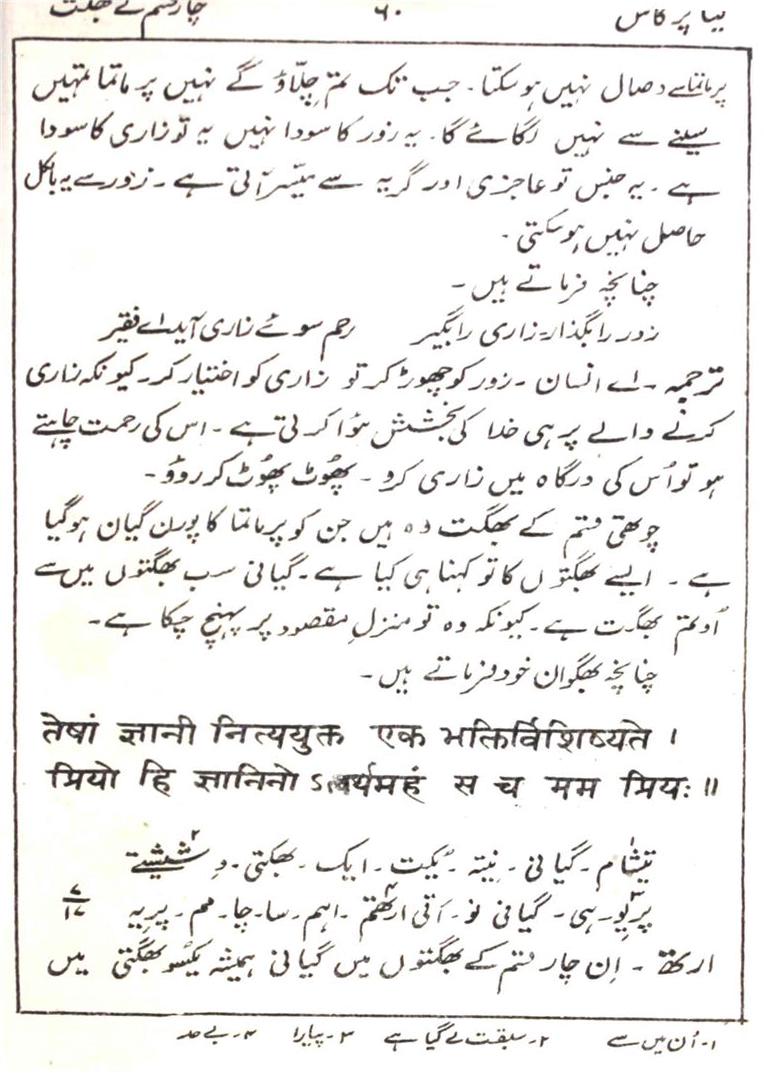 گیتا پرکاش ۶۰ چار قسم کے بھگت
پرماتما سے وصال نہیں ہوسکتا۔ جب تک تم چلّاؤ گے نہیں پرماتما تمہیں
سینے سے نہیں لگائے گا۔ یہ زور کا سودا نہیں یہ تو زاری کا سودا
ہے۔ یہ جنس تو عاجزی اور گریہ سے میسّر آتی ہے۔ زور سے یہ بالکل
حاصل نہیں ہوسکتی۔
چنانچہ فرماتے ہیں۔
زور را بگذار۔ زاری را بگیر رحم سوئے زاری آید اے فقیر
ترجمہ۔ اے انسان۔ زور کو چھوڑ کر تو زاری کو اختیار کر۔ کیونکہ زاری
کرنے والے پر ہی خدا کی بخشش ہؤا کرتی ہے۔ اس کی رحمت چاہتے
ہو تو اُس کی درگاہ میں زاری کرو۔ پھُوٹ پھُوٹ کر روؤ۔
چوتھی قسم کے بھگت وہ ہیں جن کو پرماتما کا پورن گیان ہوگیا
ہے۔ ایسے بھگتوں کا تو کہنا ہی کیا ہے۔ گیانی سب بھگتوں میں سے
اُوتم بھگت ہے۔ کیونکہ وہ تو منزلِ مقصود پر پہنچ چکا ہے۔
چنانچہ بھگوان خود فرماتے ہیں۔
तेषां ज्ञानी नित्ययुक्त एक भक्तिर्विशिष्यते ।
प्रियो हि ज्ञानिनो ऽत्यर्थमहं स च मम प्रियः ॥
تیشام۱۔ گیانی۔ نیتہ۔ یُکت۔ ایک۔ بھکتی۔ وِششیتے۲
پریو۳۔ ہی۔ گیانی نو۔ اَتی ارتھم۴۔ اہم۔ سا۔ چا۔ مم۔ پریہ ۷/۱۷
ارتھ۔ اِن چار قسم کے بھگتوں میں گیانی ہمیشہ یکسُو بھگتی میں
۱۔ اُن میں سے ۲۔ سبقت لے گیا ہے ۳۔ پیارا ۴۔ بے حد